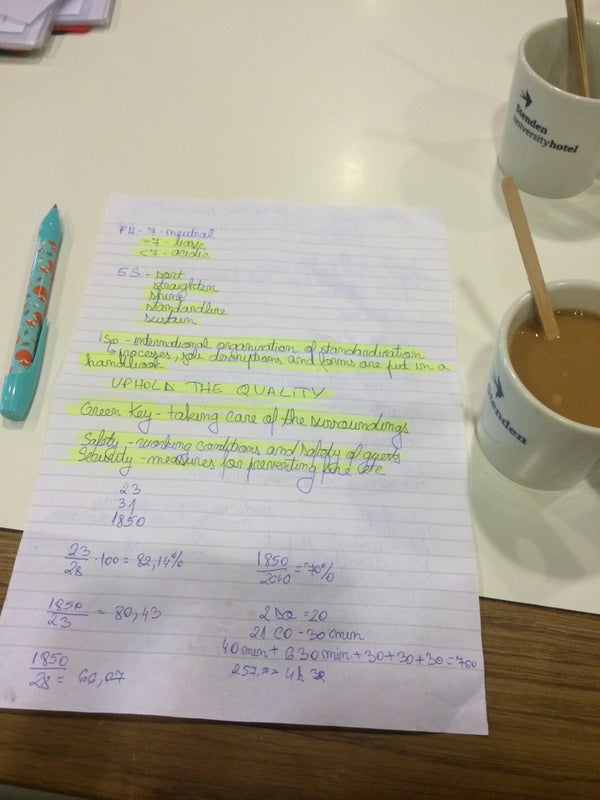 Stenden
universityhotel
Stenden
PH - 7 - neutral
>7 - basic
<7 - acidic
5S - sort
straighten
shine
standardize
sustain
ISO - international organisation of standardization
processes, job descriptions and forms are put in a
handbook
UPHOLD THE QUALITY
Green Key - taking care of the surroundings
Safety - working conditions and safety of guests
Security - measures for preventing fire etc
23
31
1850
23/28 · 100 = 82,14%
1850/2640 = 70%
1850/23 = 80,43
2 DO = 20
21 CO - 30 min
40 min + 630 min + 30 + 30 + 30 = 760
1850/28 = 66,07
4h